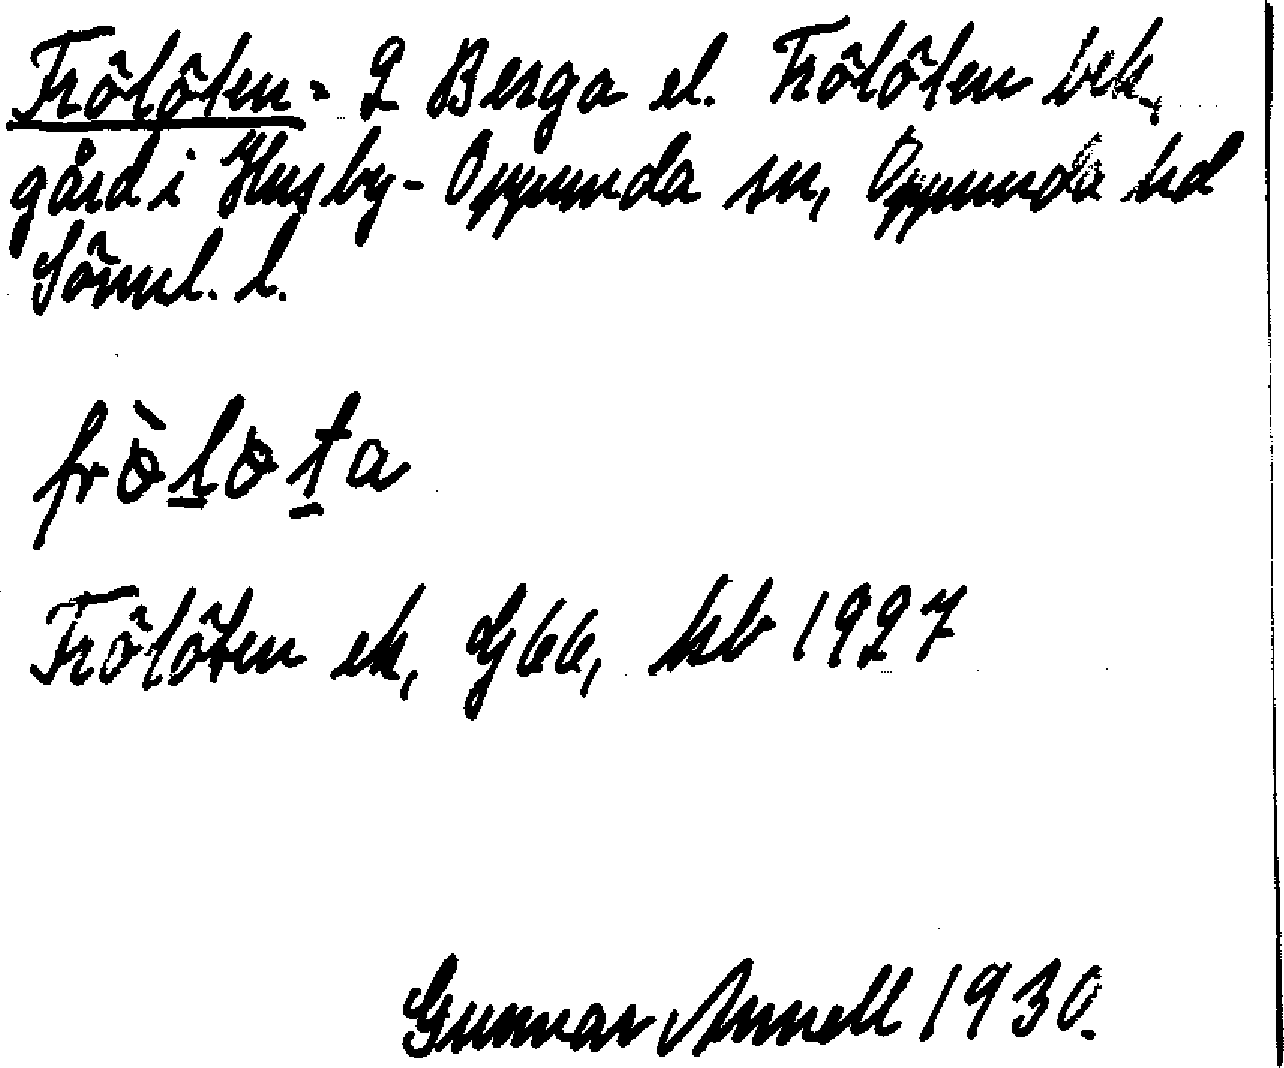 Frölöten = 2 Berga el. Frölöten bek,
gård i Husby-Oppunda sn, Oppunda hd
Söml. l.
fròlota
Frölöten ek, Gj 66, kb 1927
Gunnar Annell 1930.